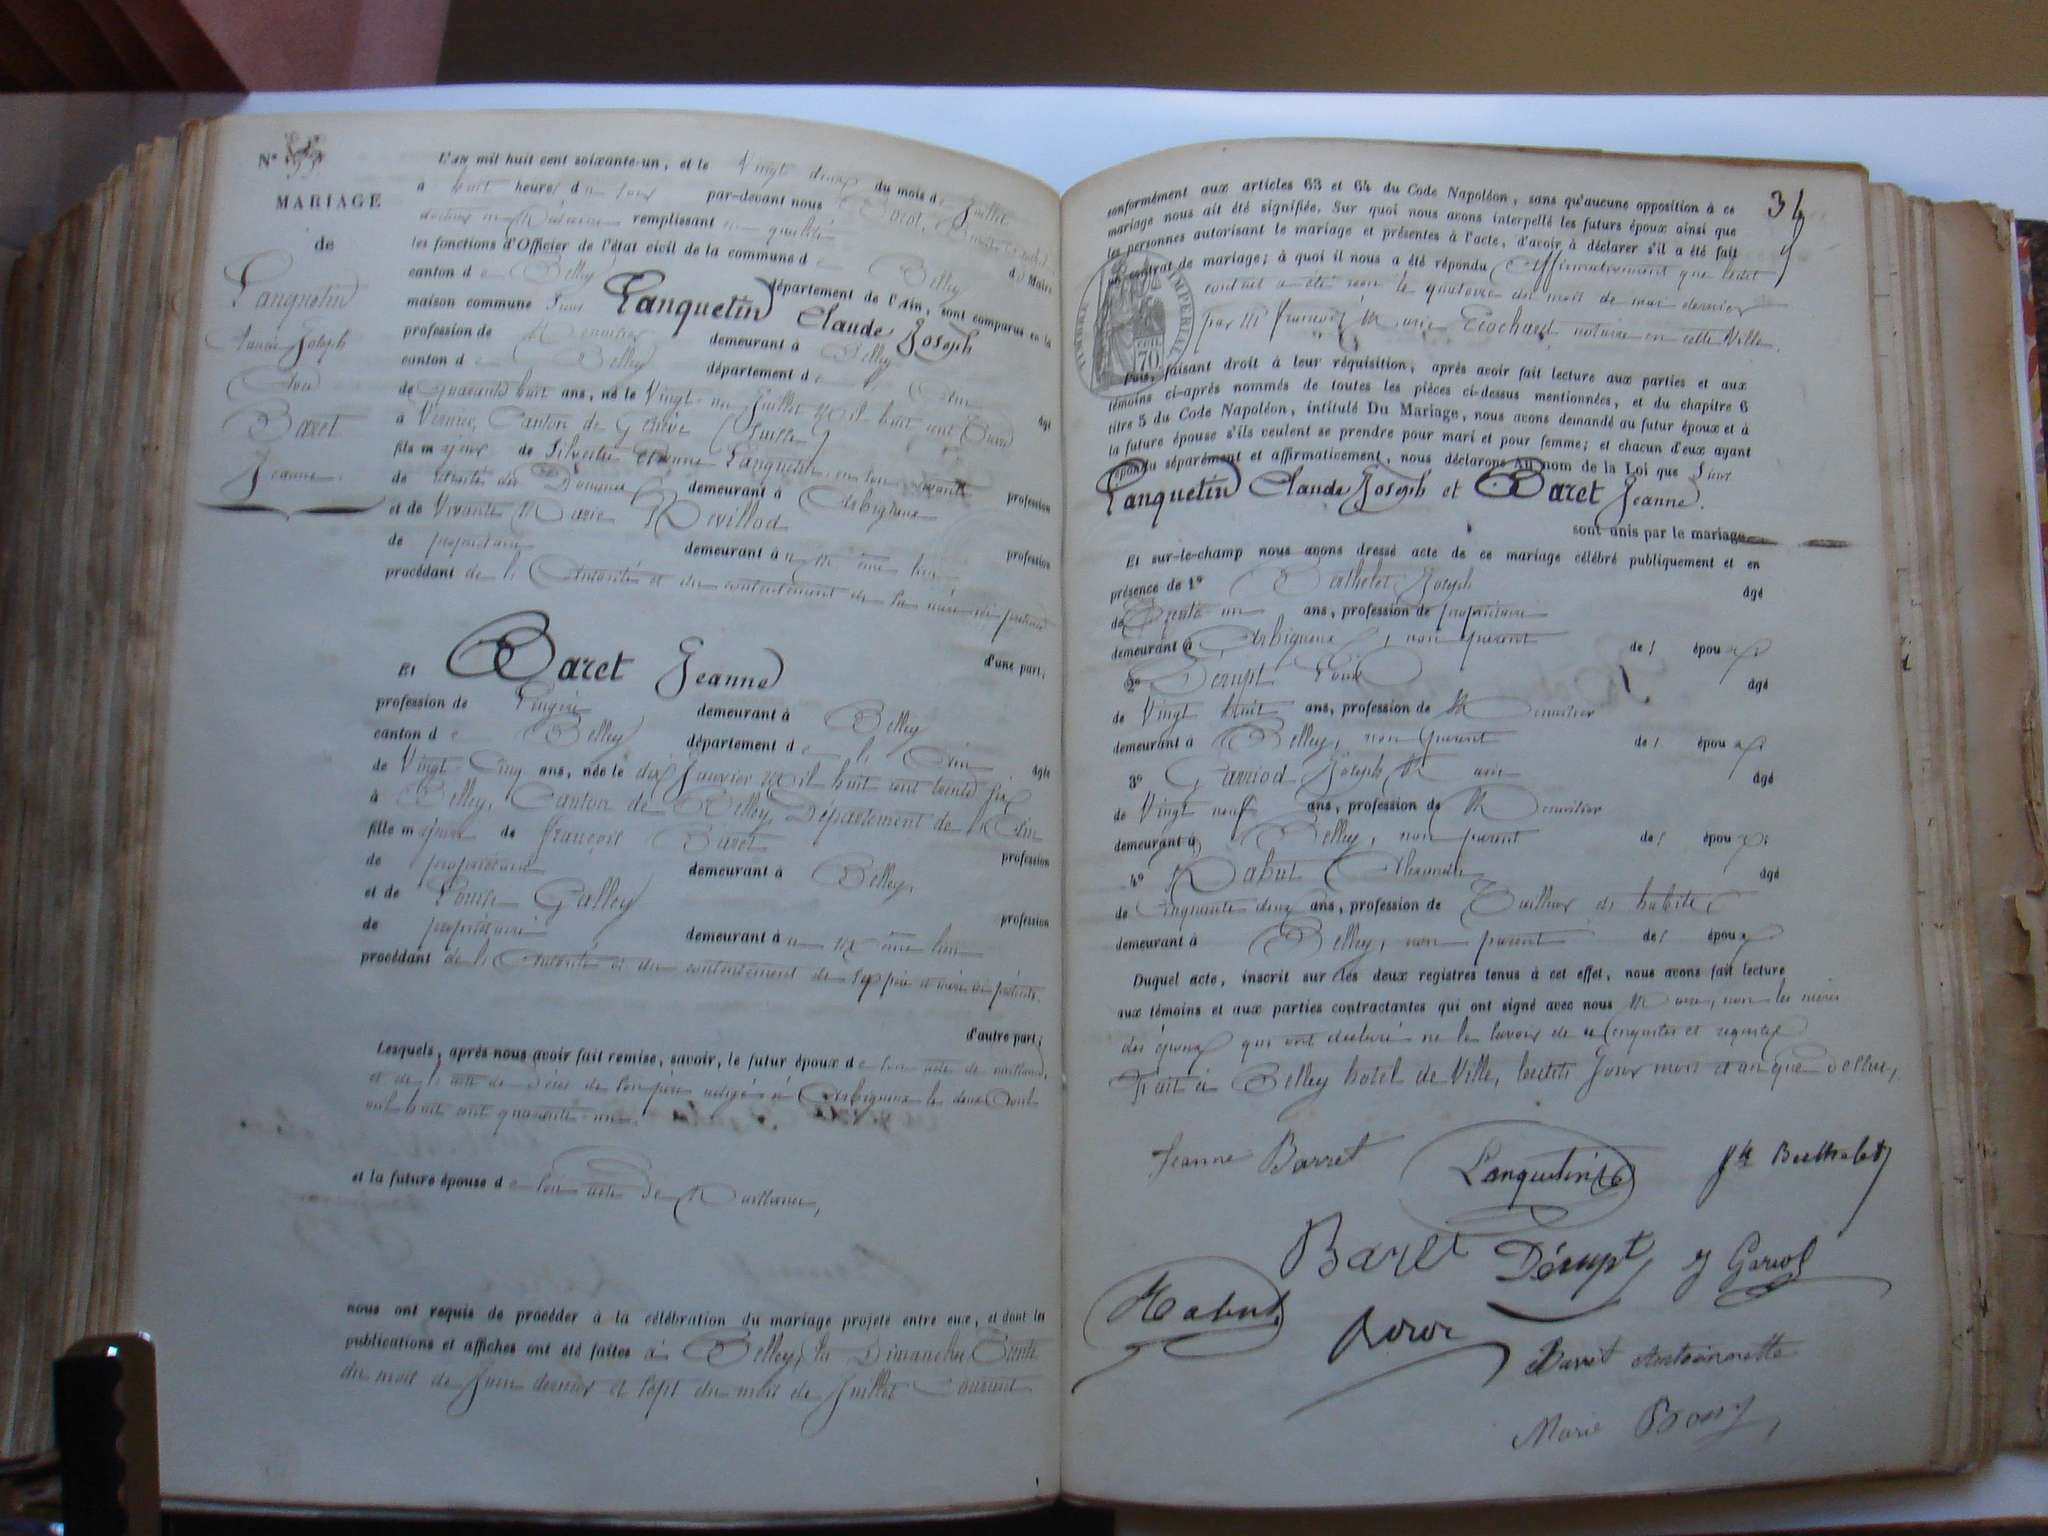 N°
MARIAGE
de
Lanquetin
Claude Joseph
Avec
Baret
Jeanne.
L'an mil huit cent soixante-un, et le Vingt deux du mois de Juillet
à huit heures du soir par-devant nous
docteur en Médecine remplissant en qualité de Maire
les fonctions d'Officier de l'état civil de la commune de Belley
canton de Belley département de l'Ain, sont comparus en la
maison commune Sieur Lanquetin Claude Joseph
profession de Menuisier demeurant à Belley
canton de Belley département de l'Ain âgé
de Quarante huit ans, né le Vingt un Juillet Mil huit cent
à Vernier, Canton de Genève (Suisse)
fils majeur de Silvestre Etienne Lanquetin, en son vivant profession
de retraité des Douanes demeurant à Arbignieu
et de Vivante Marie Revillod profession
de propriétaire demeurant au même lieu
procédant de l'Autorité et du contentement de sa mère ici présente
d'une part;
Et Baret Jeanne
profession de Lingère demeurant à Belley
canton de Belley département de l'Ain âgée
de Vingt Cinq ans, née le dix Janvier Mil huit cent trente six
à Belley, Canton de Belley, Département de l'Ain
fille majeure de François Baret profession
de propriétaire demeurant à Belley,
et de Louise Galley profession
de propriétaire demeurant au même lieu
procédant de l'Autorité et du contentement de ses père et mère ici présents.
d'autre part;
Lesquels, après nous avoir fait remise, savoir, le futur époux de son acte de naissance,
et de l'acte de Décès de son père rédigés à Arbignieu le deux Août
mil huit cent quarante
et la future épouse de son acte de Naissance,
nous ont requis de procéder à la célébration du mariage projeté entre eux, et dont les
publications et affiches ont été faites à Belley, les Dimanches Trente
du mois de Juin dernier et Sept du mois de Juillet Courant
34
conformément aux articles 63 et 64 du Code Napoléon, sans qu'aucune opposition à ce
mariage nous ait été signifiée. Sur quoi nous avons interpellé les futurs époux ainsi que
les personnes autorisant le mariage et présentes à l'acte, d'avoir à déclarer s'il a été fait
un contrat de mariage; à quoi il nous a été répondu Affirmativement que ledit
contrat a été reçu le quatorze du mois de mai dernier
par Me François Marie Trochard, notaire en cette Ville.
TIMBRE IMPERIAL
70
Puis, faisant droit à leur réquisition, après avoir fait lecture aux parties et aux
témoins ci-après nommés de toutes les pièces ci-dessus mentionnées, et du chapitre 6
titre 5 du Code Napoléon, intitulé Du Mariage, nous avons demandé au futur époux et à
la future épouse s'ils veulent se prendre pour mari et pour femme; et chacun d'eux ayant
répondu séparément et affirmativement, nous déclarons Au nom de la Loi que Sieur
Lanquetin Claude Joseph et Baret Jeanne.
sont unis par le mariage
Et sur-le-champ nous avons dressé acte de ce mariage célébré publiquement et en
présence de 1° Bathelet Joseph âgé
de Trente un ans, profession de propriétaire
demeurant à Arbignieu, non parent des époux;
2° Dérupt Louis âgé
de Vingt huit ans, profession de Menuisier
demeurant à Belley, non parent des époux;
3° Garriod Joseph Marie âgé
de Vingt neuf ans, profession de Menuisier
demeurant à Belley, non parent des époux;
4° Rabut Alexandre âgé
de Cinquante deux ans, profession de Tailleur de habits
demeurant à Belley, non parent des époux
Duquel acte, inscrit sur les deux registres tenus à cet effet, nous avons fait lecture
aux témoins et aux parties contractantes qui ont signé avec nous Maire, non les mères
des époux qui ont déclaré ne le savoir de ce enquises et requises
Fait à Belley hotel de Ville, lesdits Jour mois et an que dessus,
Jeanne Barret Lanquetin Jh Berthelet
Baret Dérupt J Gariod
Rabut
Barret Antoinnette
Marie